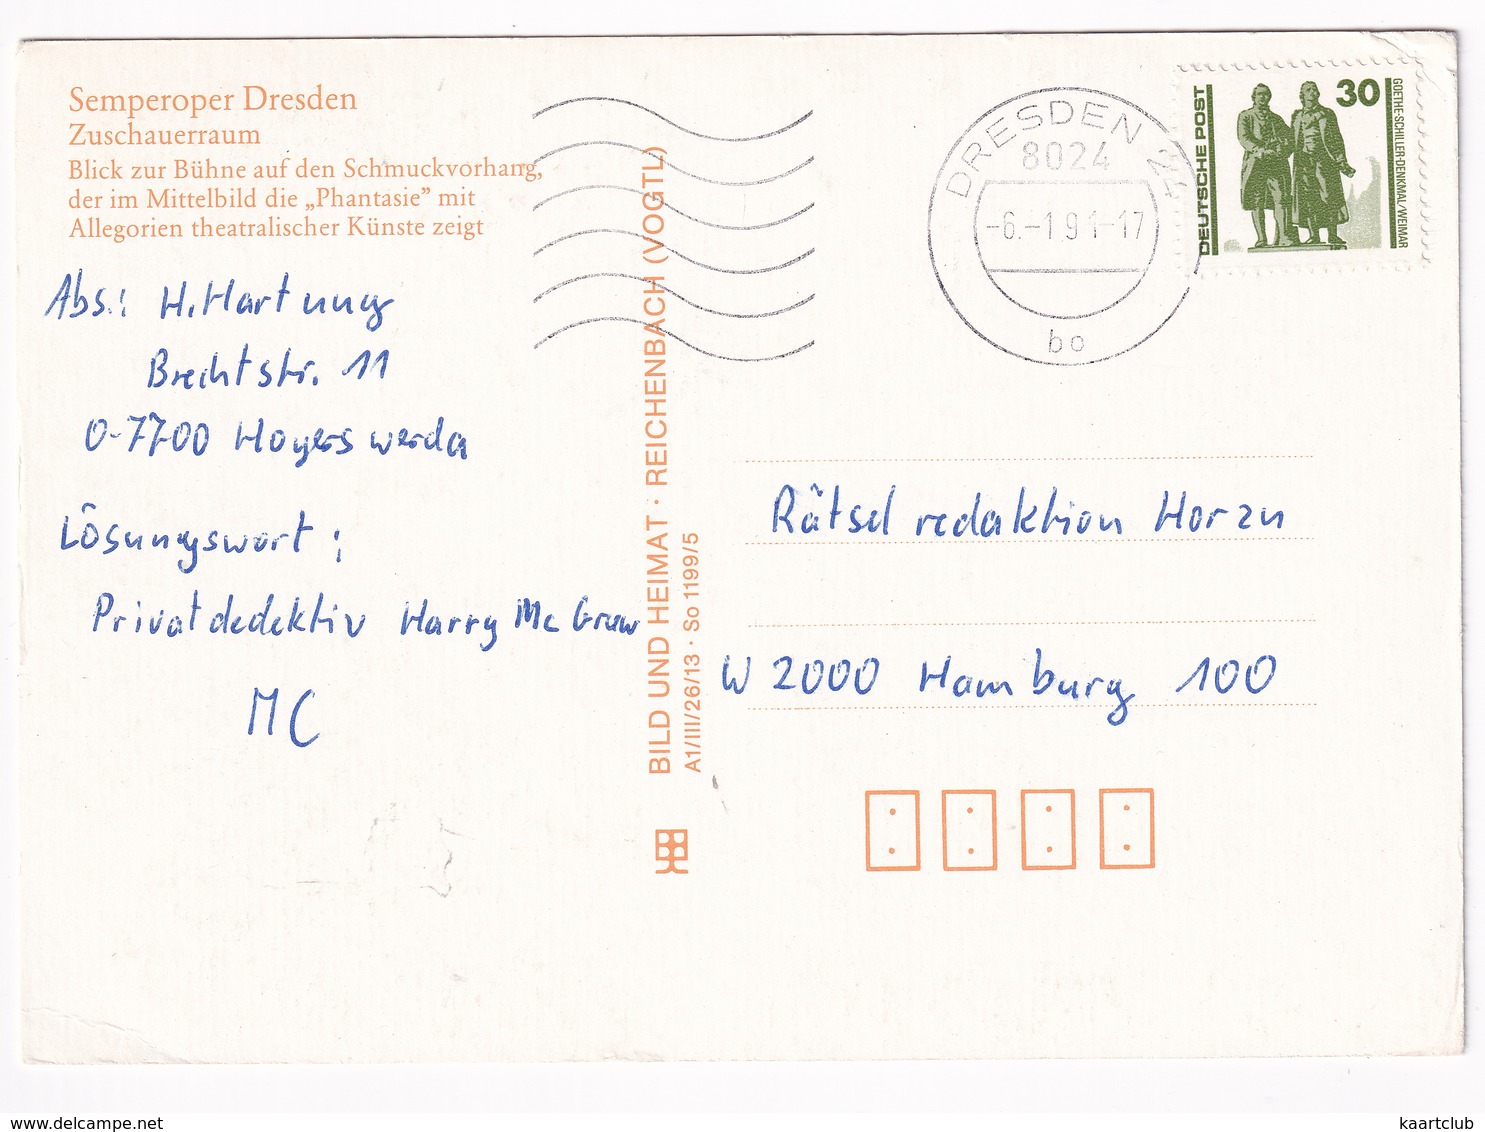 Semperoper Dresden
Zuschauerraum
Blick zur Bühne auf den Schmuckvorhang,
der im Mittelbild die „Phantasie” mit
Allegorien theatralischer Künste zeigt
Abs.: H. Hartung
Brechtstr. 11
O-7700 Hoyerswerda
Lösungswort:
Privatdedektiv Harry Mc Graw
MC
BILD UND HEIMAT · REICHENBACH (VOGTL)
A1/III/26/13 · So 1199/5
DRESDEN 24
8024
-6.-1.91-17
bo
DEUTSCHE POST
30
GOETHE-SCHILLER-DENKMAL/WEIMAR
Rätselredaktion Horzu
W 2000 Hamburg 100
www.delcampe.net
kaartclub